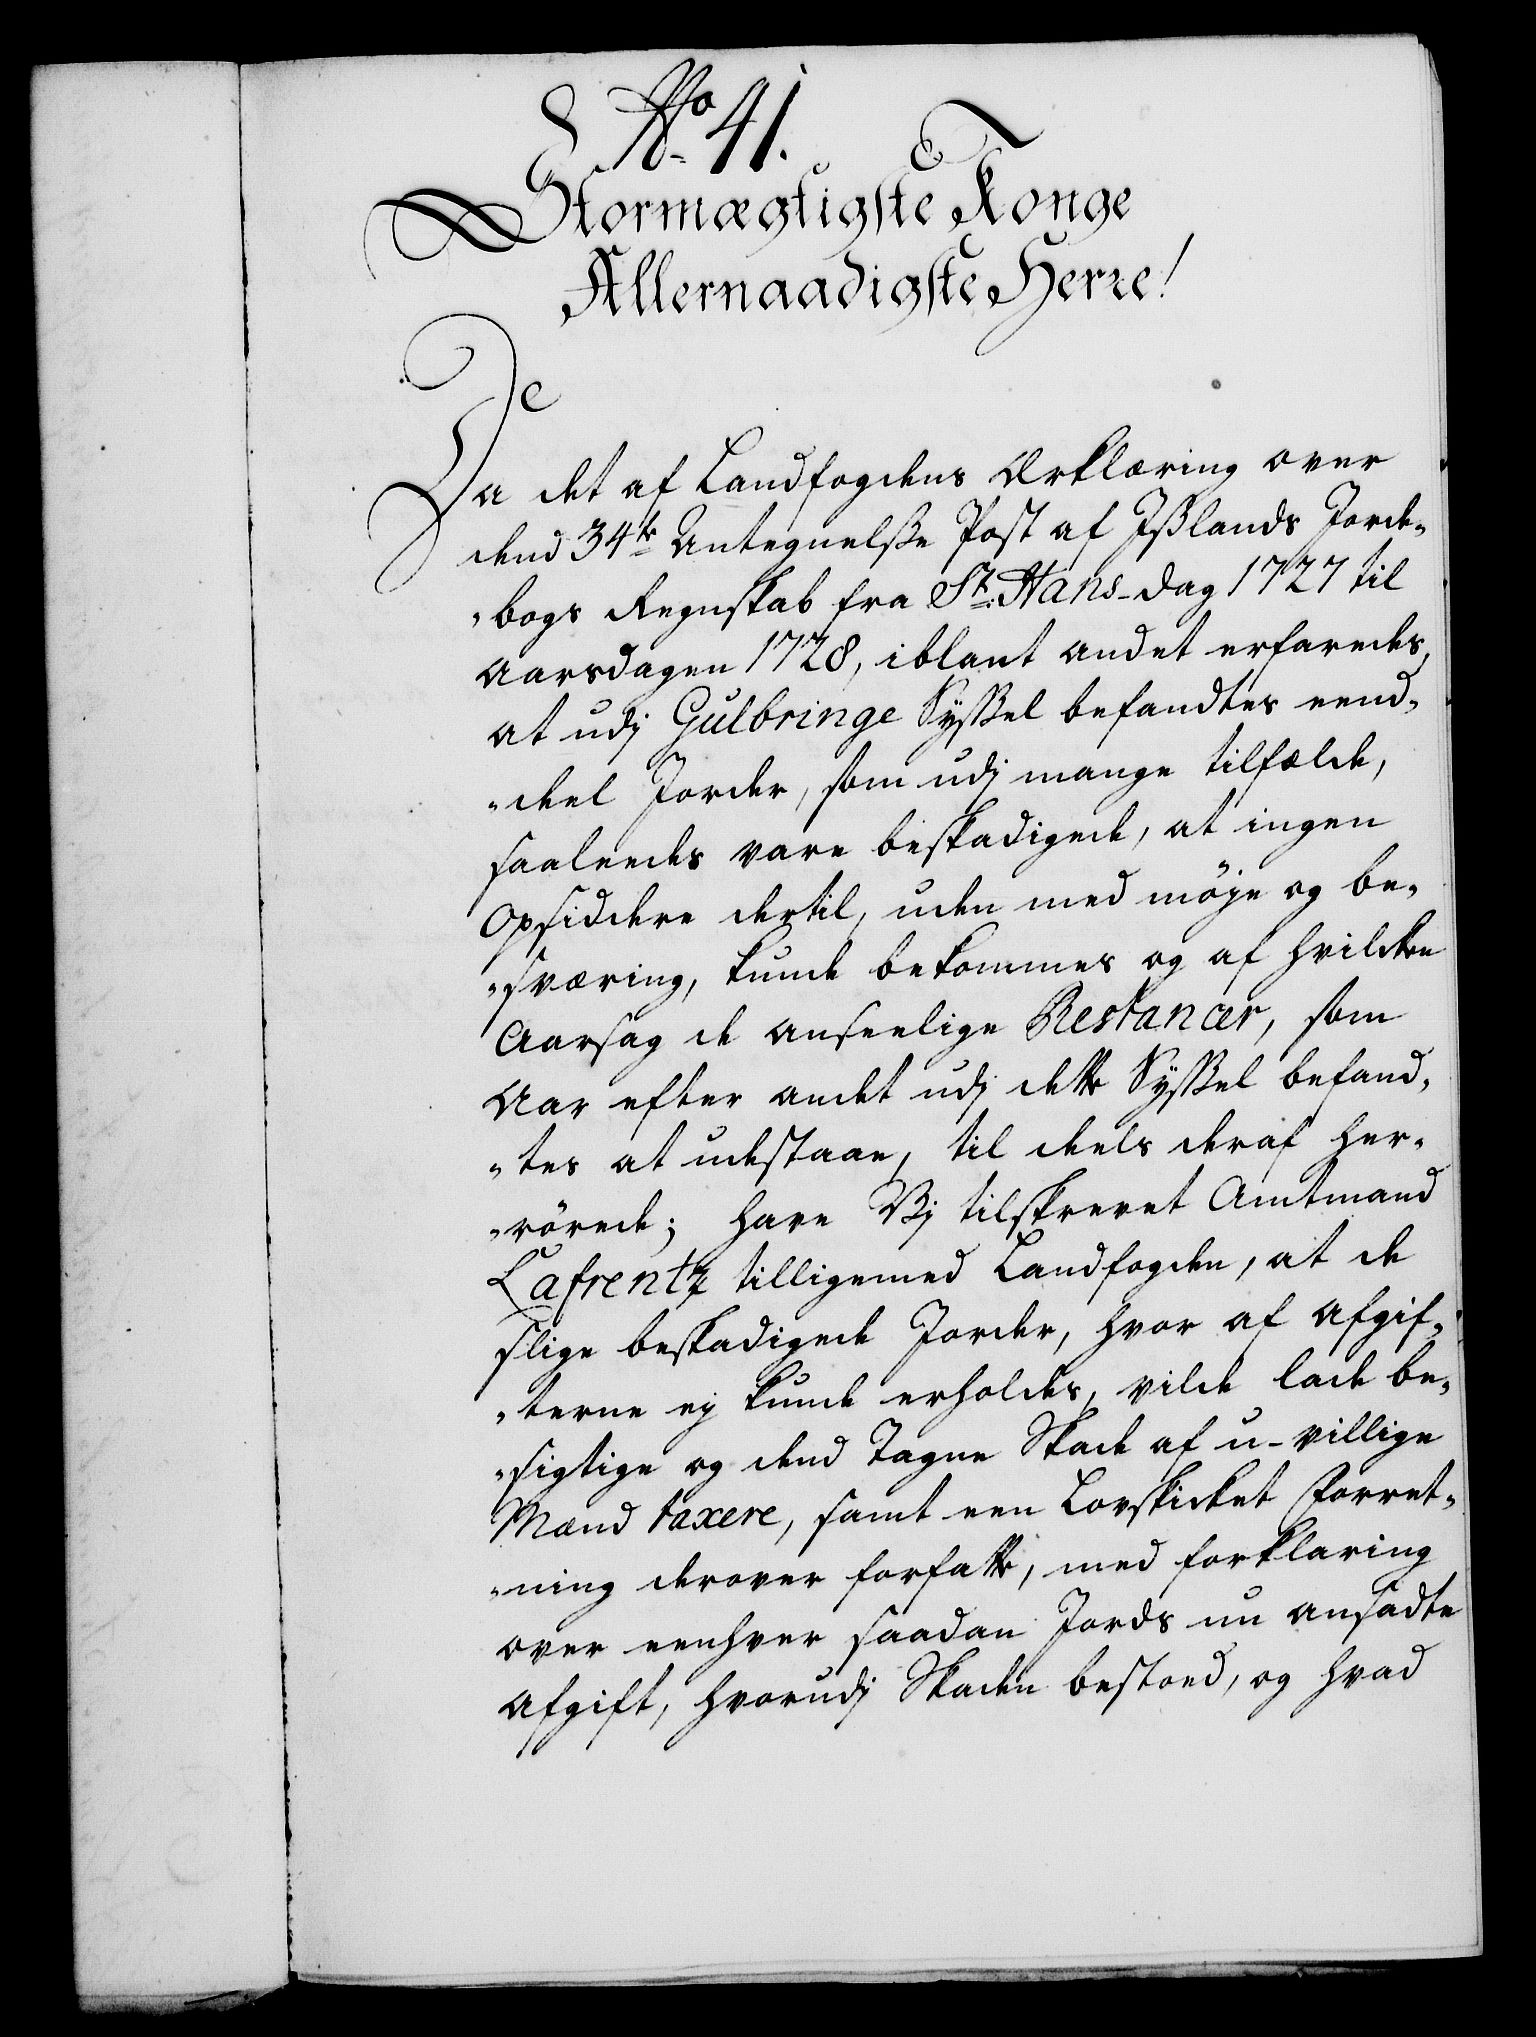 No. 41.
Stormægtigste Konge
Allernaadigste Herre!
Da det af Landfogdens Erklæring over
dend 34te Antegnelsse Post af Ißlands Jorde-
bogs Regnskab fra St: Hans-Dag 1727 til
Aarsdagen 1728, iblant andet erfaredes,
at udj Gulbringe Syssel befandtes eend-
deel Jorder, som udj mange tilfælde,
saaleedes vare beskadigede, at ingen
Opsiddere dertil, uden med möje og be-
sværing, kunde bekommes og af hvilcken
Aarsag de anseelige Restancer, som
Aar efter andet udj dette Syssel befand-
tes at udestaae, til deels deraf her-
rörede; have Vj tilskrevet Amtmand
Lafrentz tilligemed Landfogden, at de
slige beskadigede Jorder, hvor af Afgif-
terne ej kunde erholdes, vilde lade be-
sigtige og dend Tagne Skade af u-villige
Mænd taxere, samt een Lovskicket Forret-
ning derover forfatte, med forklaring
over eenhver saadan Jords nu ansadte
Afgift, hvorudj Skaden bestoed, og hvad